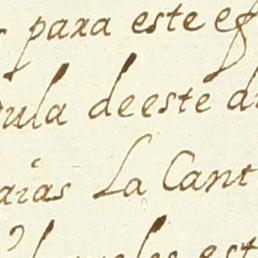 para este ef
ula deeste d
aias La Cant
les est